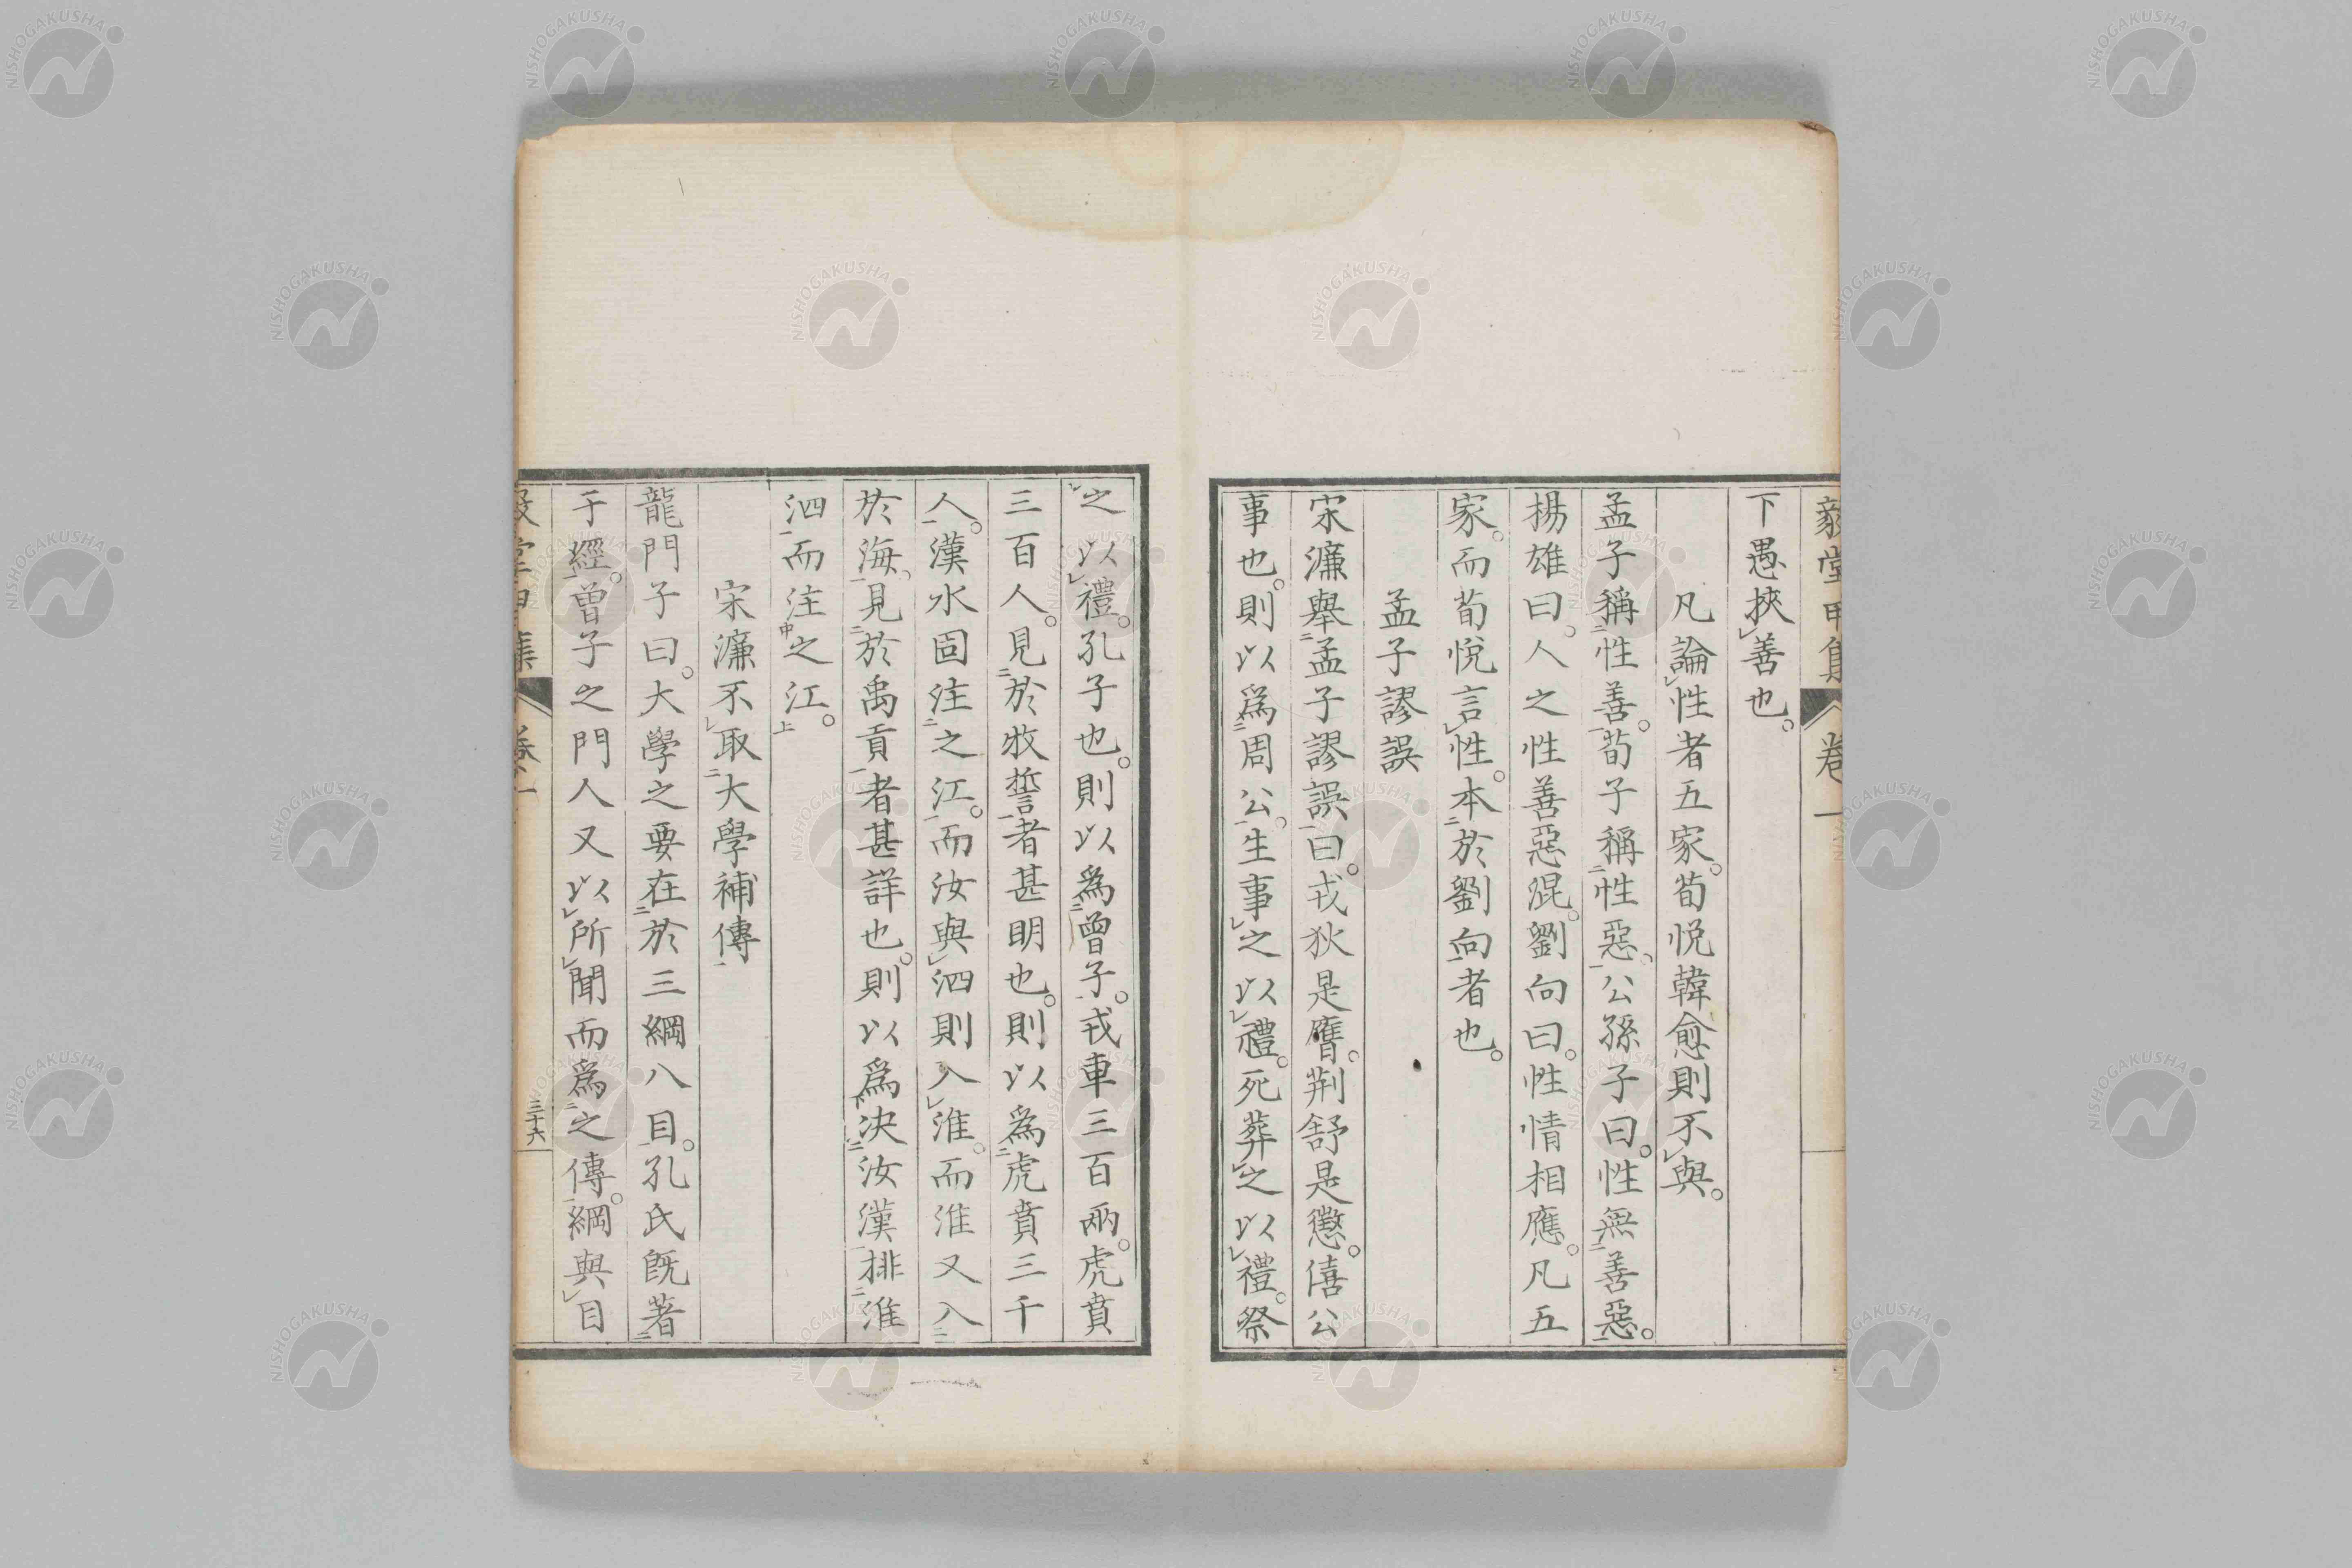 毅堂甲集 卷一
下愚挾善也。
凡論性者五家。荀悅韓愈則不與。
孟子稱性善。荀子稱性惡。公孫子曰。性無善惡。
揚雄曰。人之性善惡混。劉向曰。性情相應。凡五
家。而荀悅言性。本於劉向者也。
孟子謬誤
宋濂舉孟子謬誤曰。戎狄是膺。荆舒是懲。僖公
事也。則以爲周公。生事之以禮。死葬之以禮。祭
之以禮。孔子也。則以爲曾子。戎車三百兩。虎賁
三百人。見於牧誓者甚明也。則以爲虎賁三千
人。漢水固注之江。而汝與泗則入淮。而淮又入
於海。見於禹貢者甚詳也。則以爲决汝漢排淮
泗而注之江。
宋濂不取大學補傳
龍門子曰。大學之要在於三綱八目。孔氏既著
于經。曾子之門人又以所聞而爲之傳。綱與目
毅堂甲集 卷一 三十六
NISHOGAKUSHA